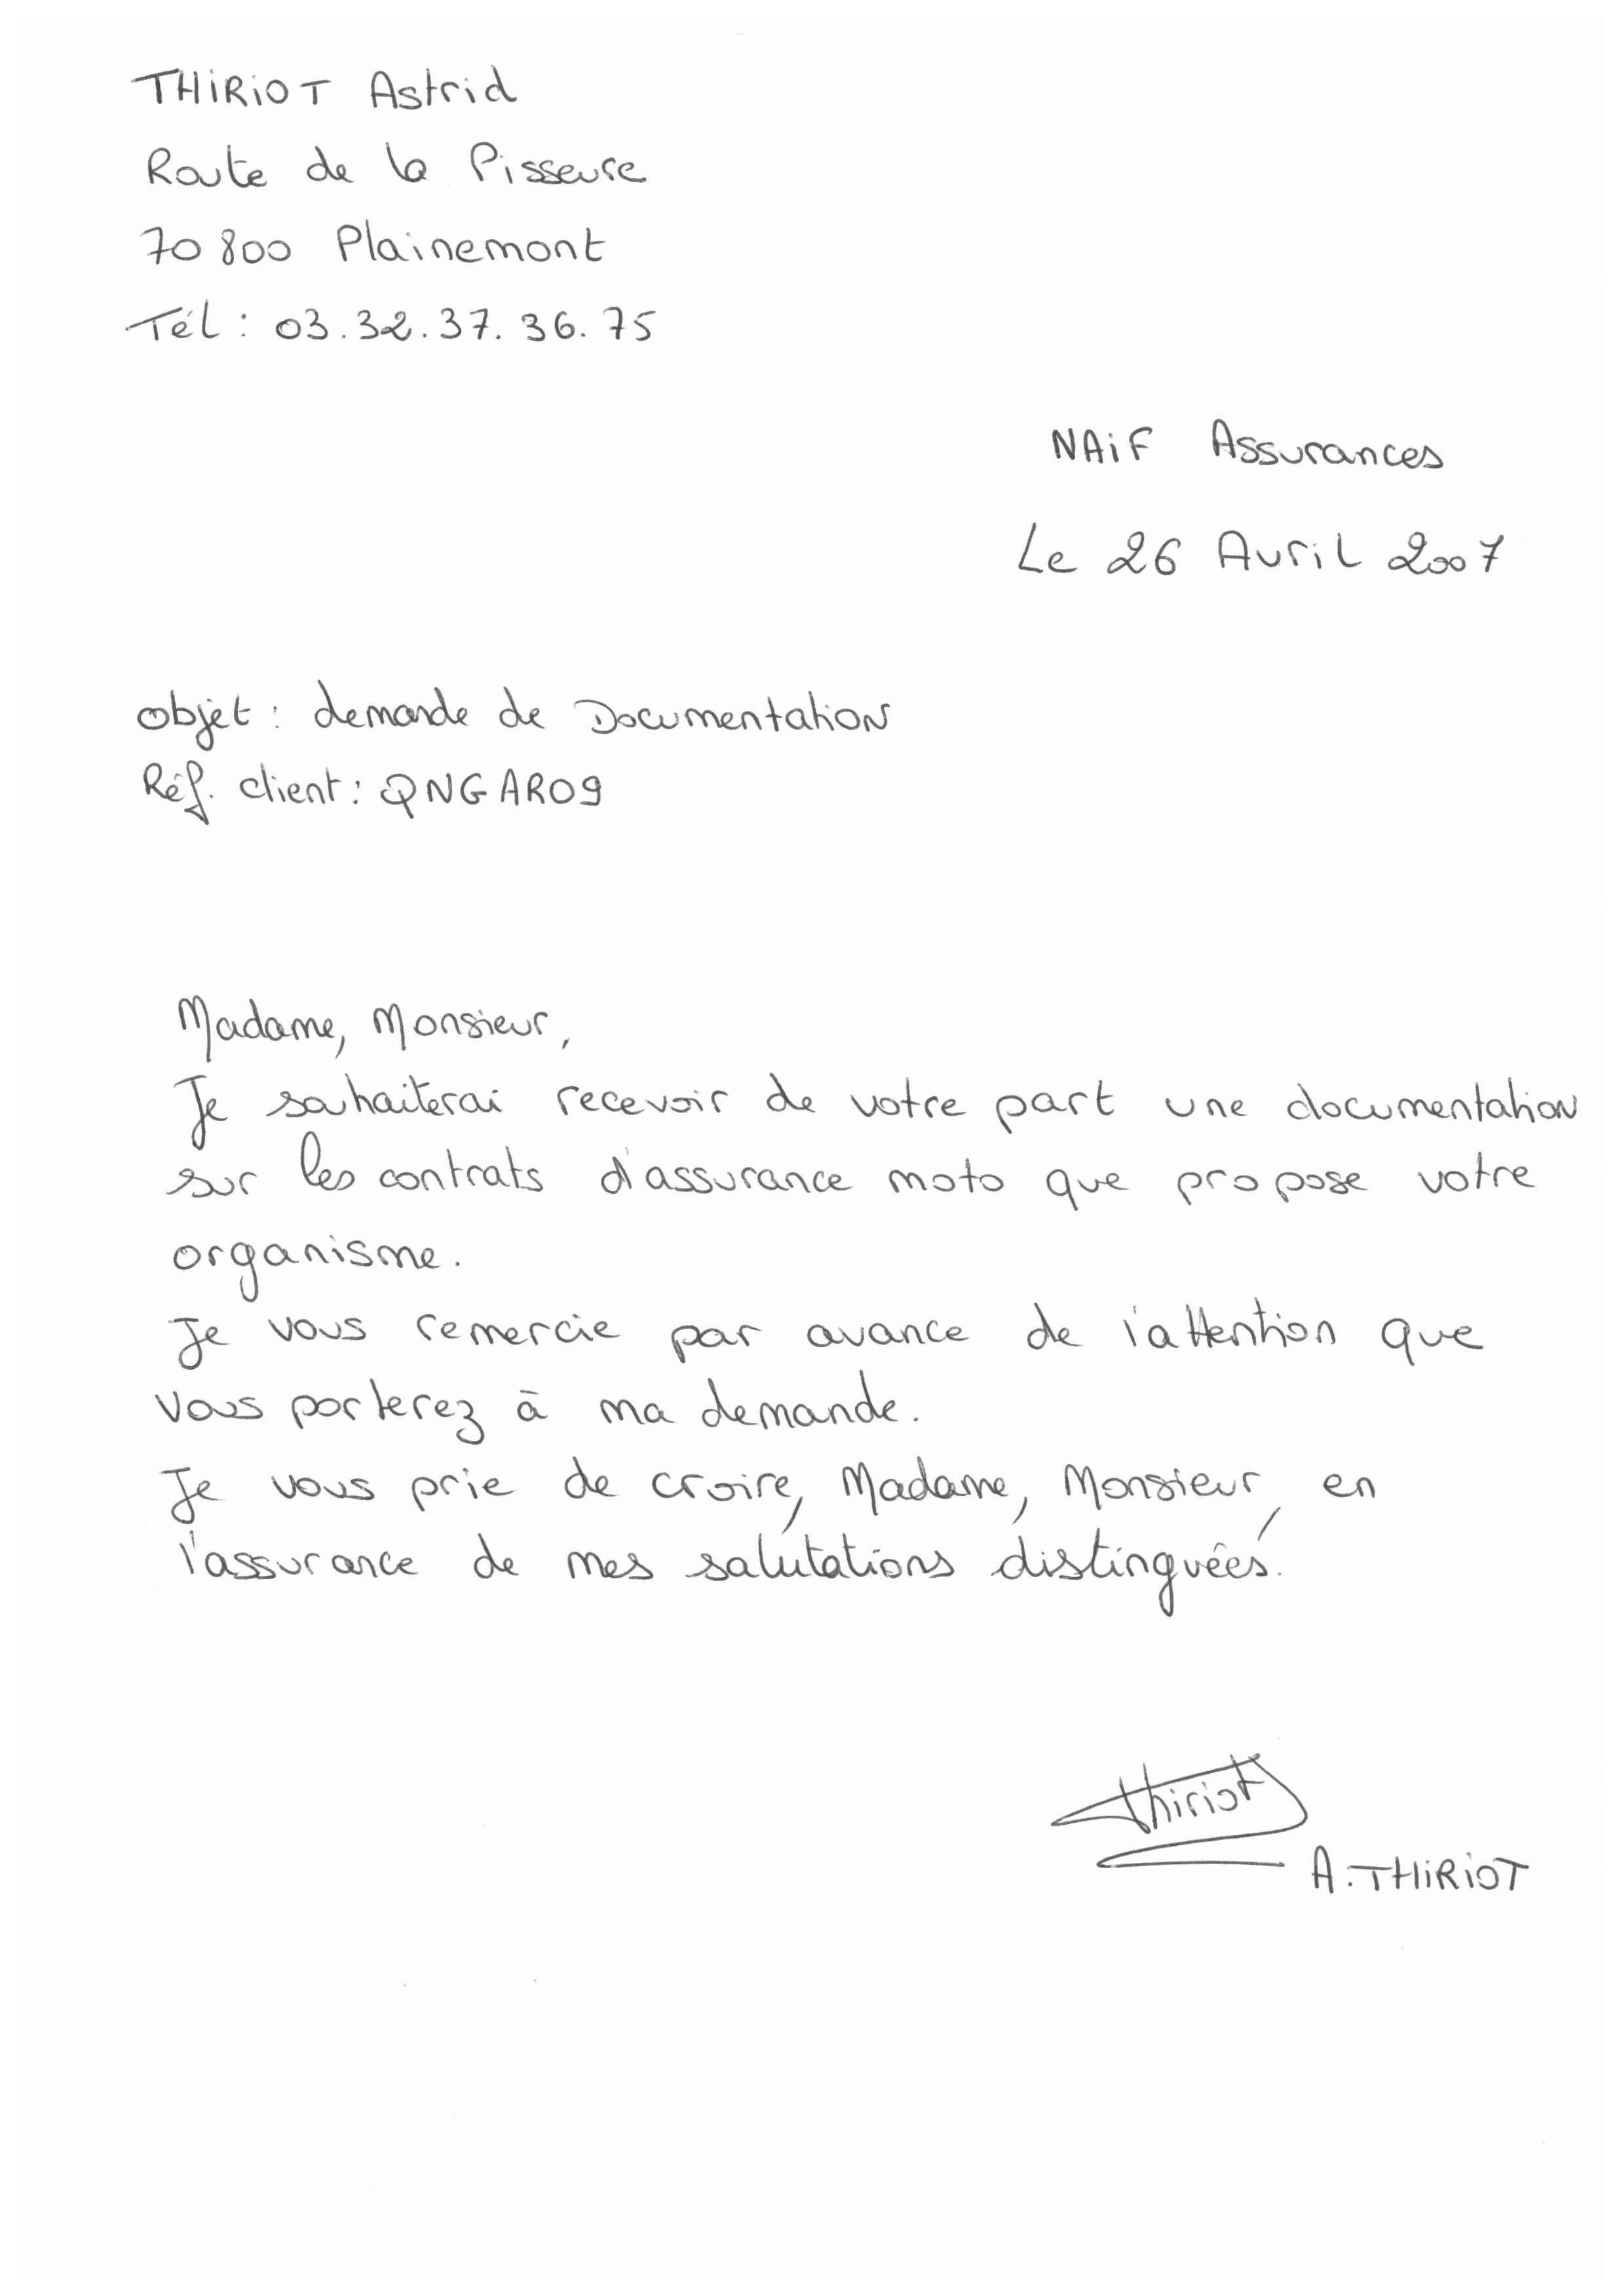 THIRIOT Astrid
Route de la Pisseure
70800 Plainemont
Tél : 03.32.37.36.75
NAIF Assurances
Le 26 Avril 2007
objet : demande de Documentation
Réf. client : QNGAR09
Madame, Monsieur,
Je souhaiterai recevoir de votre part une documentation
sur les contrats d'assurance moto que propose votre
organisme.
Je vous remercie par avance de l'attention que
vous porterez à ma demande.
Je vous prie de croire, Madame, Monsieur, en
l'assurance de mes salutations distinguées.
thiriot
A. THIRIOT